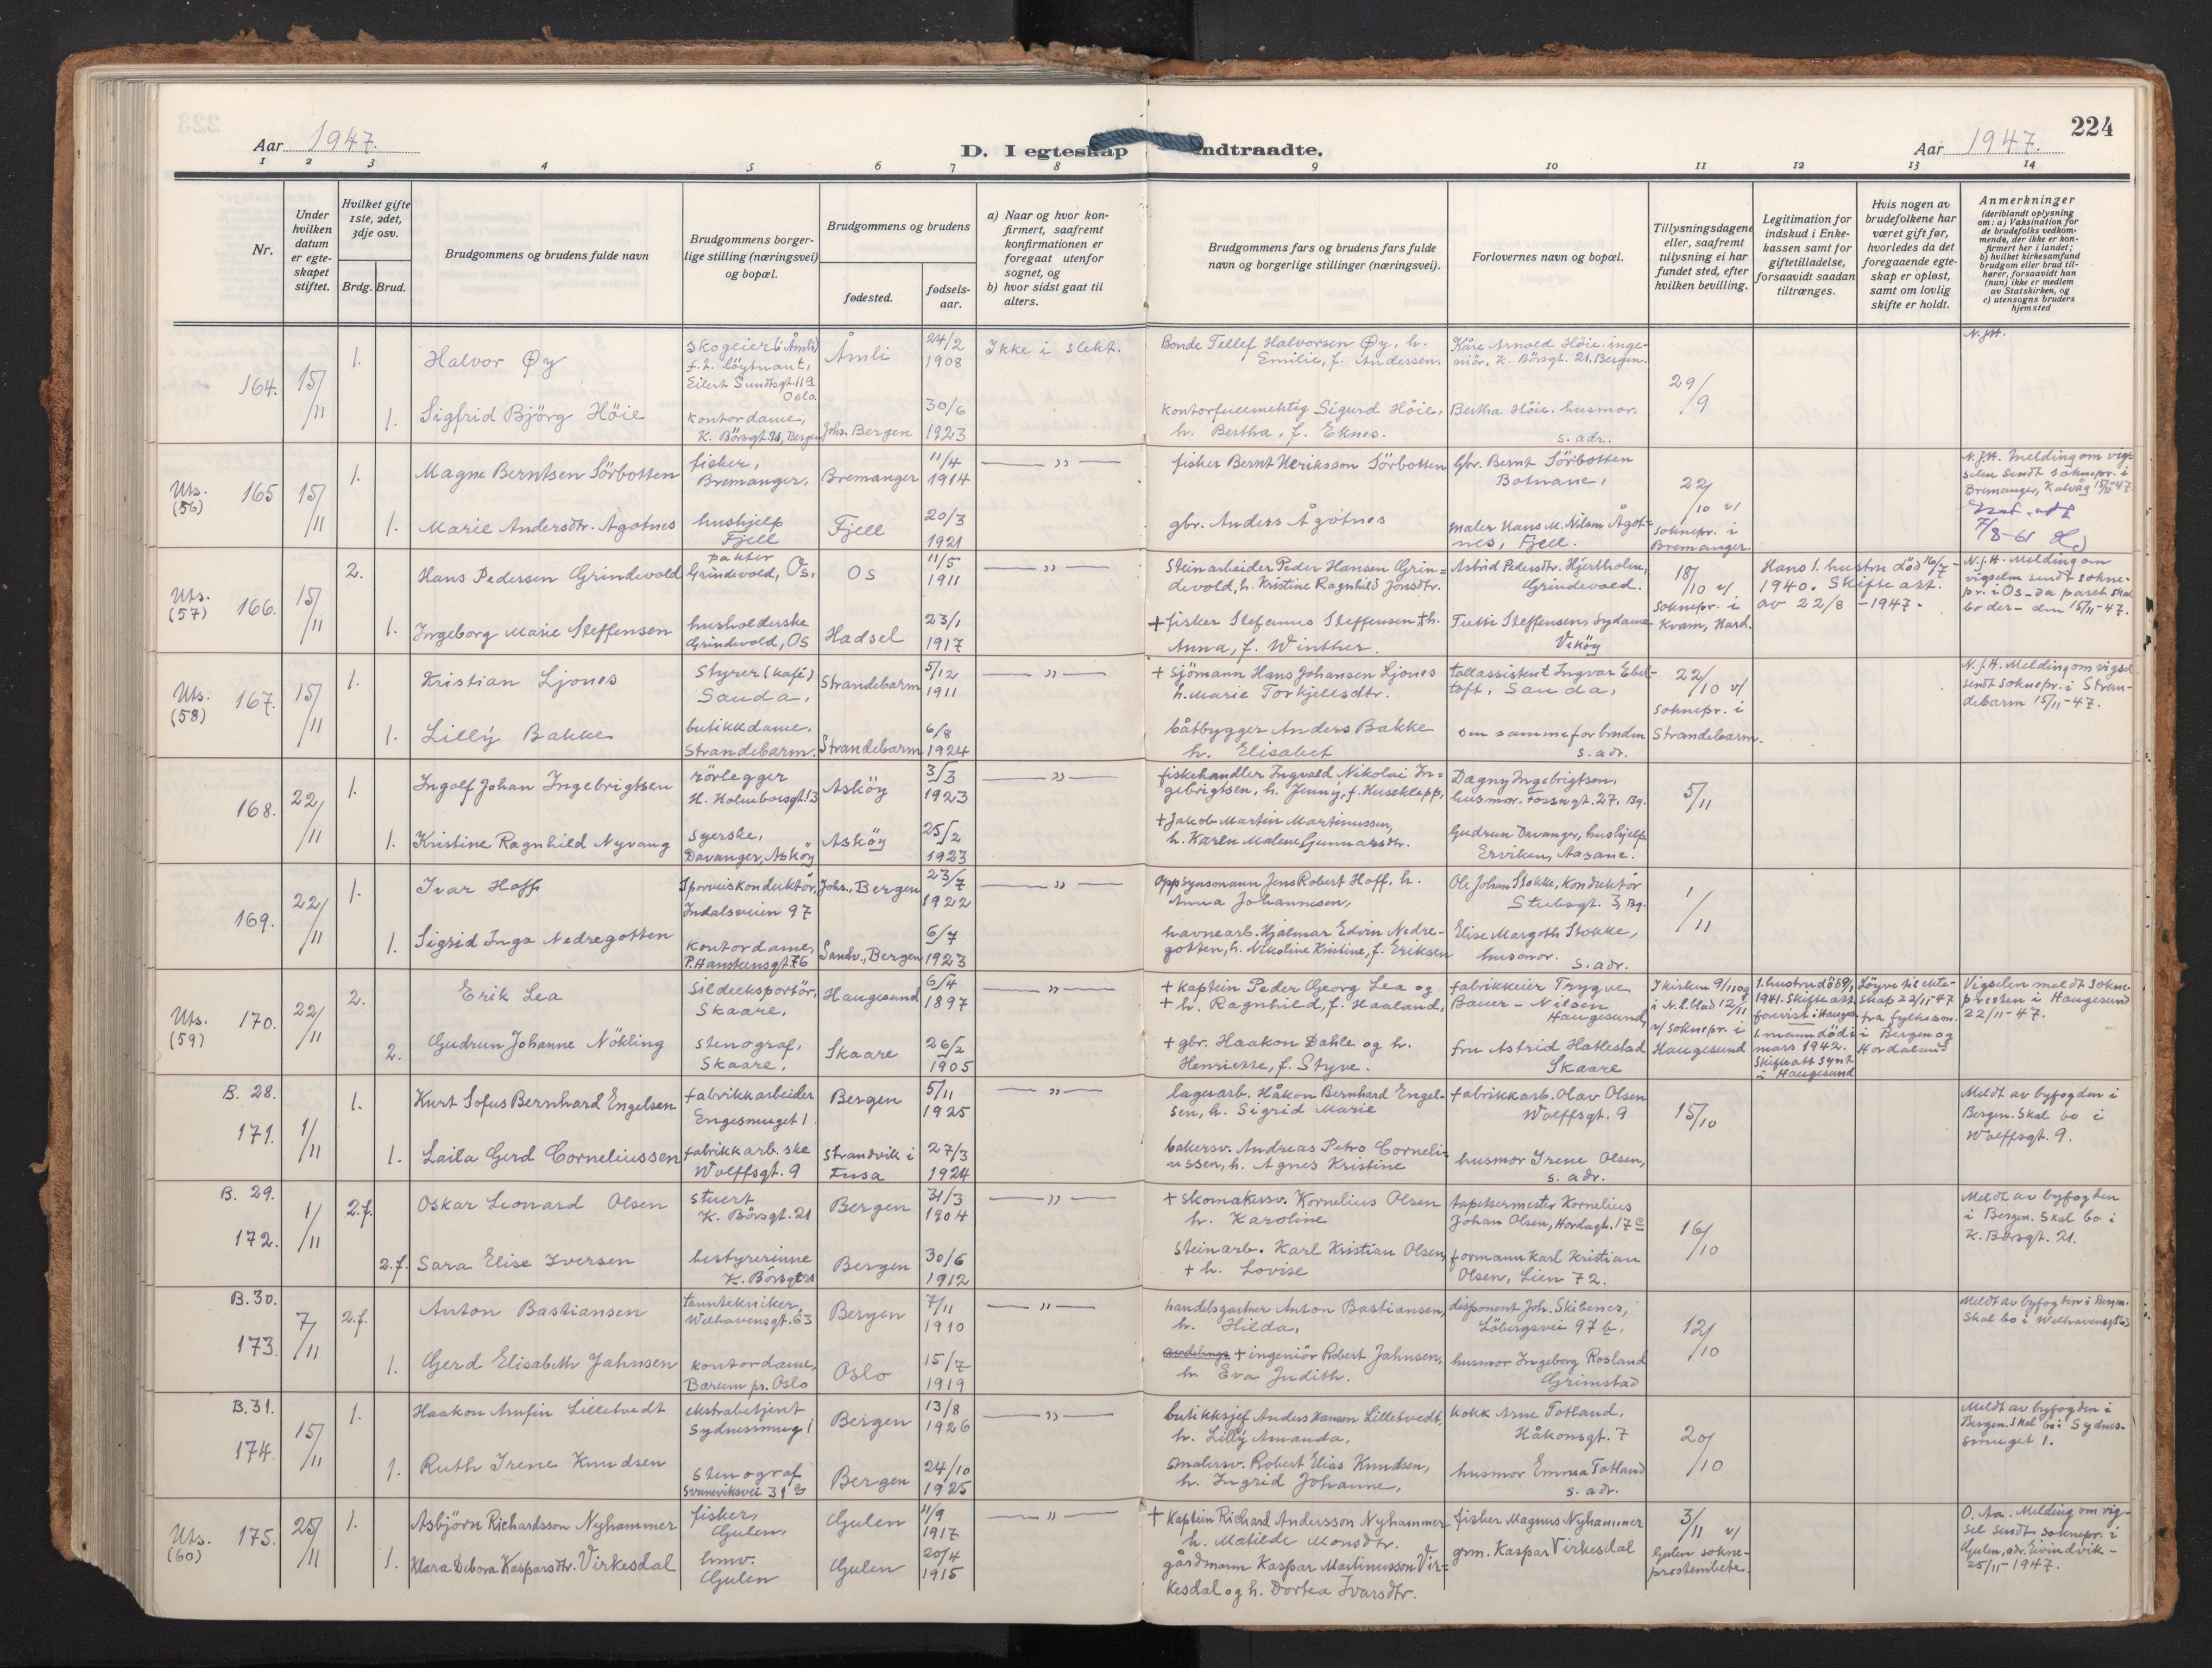 224
Aar 1947.
D. I egteskap indtraadte.
Aar 1947.
1 2 3 4 5 6 7 8 9 10 11 12 13 14
Nr.
Under hvilken datum er egteskapet stiftet.
Hvilket gifte 1ste, 2det, 3dje osv.
Brdg. Brud.
Brudgommens og brudens fulde navn
Brudgommens borgerlige stilling (næringsvei) og bopæl.
Brudgommens og brudens
fødested.
fødselsaar.
a) Naar og hvor konfirmert, saafremt konfirmationen er foregaat utenfor sognet, og
b) hvor sidst gaat til alters.
Brudgommens fars og brudens fars fulde navn og borgerlige stillinger (næringsvei).
Forlovernes navn og bopæl.
Tillysningsdagene eller, saafremt tillysning ei har fundet sted, efter hvilken bevilling.
Legitimation for indskud i Enkekassen samt for giftetilladelse, forsaavidt saadan tiltrænges.
Hvis nogen av brudefolkene har været gift før, hvorledes da det foregaaende egteskap er opløst, samt om lovlig skifte er holdt.
Anmerkninger
(deriblandt oplysning om: a) Vaksination for de brudefolks vedkommende, der ikke er konfirmert her i landet;
b) hvilket kirkesamfund brudgom eller brud tilhører, forsaavidt han (hun) ikke er medlem av Statskirken, og
c) utensogns bruders hjemsted
164. 15/11
1. Halvor Øy
skogeier (i Åmli) f.t. löytnant, Eilert Sundtsgt. 11 B Oslo.
Åmli 24/2 1908 Ikke i slekt.
Bonde Tellef Halvorsen Øy, h. Emilie, f. Andersen.
Kåre Arnold Höie, ingeniör, K. Börsgt. 21. Bergen.
29/9
N.J.H.
1. Sigfrid Björg Höie
kontordame, K. Börsgt. 21, Bergen
Johs. Bergen 30/6 1923
kontorfullmektig Sigurd Höie, h. Bertha, f. Eknes.
Bertha Höie, husmor. s. adr.
Uts. (56) 165 15/11
1. Magne Berntsen Sörbotten
fisker, Bremanger.
Bremanger 11/4 1914 — " —
fisker Bernt Heriksson Sörbotten
Gbr. Bernt Sörbotten Botnane,
22/10 v/ soknepr. i Bremanger.
N.J.H. Melding om vigselen sendt soknepr. i Bremanger, Kalvåg 15/11-47.
7/8-61
1. Marie Andersdtr. Ågotnes
hushjelp Fjell
Fjell 20/3 1921
gbr. Anders Ågotnes
maler Hans M. Nilsen Ågotnes, Fjell.
Uts. (57) 166. 15/11
2. Hans Pedersen Grindevold
pakter Grindevold, Os.
Os 11/5 1911 — " —
Steinarbeider Peder Hansen Grindevold, h. Kristine Ragnhild Jonsdtr.
Astrid Pedersdtr. Hjertholm, Grindevold.
18/10 v/ soknepr. i Kvam, Hard.
Hans 1. hustru död 16/7-1940. Skifte att. av 22/8-1947.
N.J.H. Melding om vigselen sendt soknepr. i Os - da paret skal bo der - den 15/11-47.
1. Ingeborg Marie Steffensen
husholderske Grindevold, Os
Hadsel 23/1 1917
+ fisker Stefanus Steffensen + h. Anna, f. Winther.
Tutti Steffensen, sydame Vikøy
Uts. (58) 167. 15/11
1. Kristian Ljones
Styrer (kafé) Sauda,
Strandebarm 5/12 1911 — " —
+ sjömann Hans Johansen Ljones h. Marie Torkjellsdtr.
tollassistent Ingvar Ebeltoft, Sauda,
22/10 v/ soknepr. i Strandebarm.
N.J.H. Melding om vigsel sendt soknepr. i Strandebarm 15/11-47.
1. Lilly Bakke
butikkdame, Strandebarm.
Strandebarm 6/8 1924
båtbygger Anders Bakke h. Elisabet
den samme for bruden s. adr.
168. 22/11
1. Ingolf Johan Ingebrigtsen
rörlegger H. Holmboesgt. 13
Asköy 3/3 1923 — " —
fiskehandler Ingvald Nikolai Ingebrigtsen, h. Jenny, f. Huseklepp,
Dagny Ingebrigtsen, husmor. Fossngt. 27, Bg.
5/11
1. Kristine Ragnhild Nyvang
syerske, Davanger, Asköy
Asköy 25/2 1923
+ Jakob Martin Martinussen, h. Karen Malene Gunnarsdtr.
Gudrun Davanger, hushjelp Erviken, Aasane.
169. 22/11
1. Ivar Hoff
Sporveiskonduktör, Indalsveien 97
Johs., Bergen 23/7 1922 — " —
Oppsynsmann Jens Robert Hoff, h. Anna Johannesen,
Ole Johan Stokke, konduktör Stubsgt. 3, Bg.
1/11
1. Sigrid Inga Nedregotten
kontordame, P. Hansteensgt. 76
Sandv., Bergen 6/7 1923
havnearb. Hjalmar Edvin Nedregotten, h. Nikoline Kristine, f. Eriksen
Elise Margoth Stokke, husmor. s. adr.
Uts. (59) 170. 22/11
2. Erik Lea
sildeeksportör, Skaare,
Haugesund 6/4 1897 — " —
+ kaptein Peder Georg Lea og + h. Ragnhild, f. Haaland,
fabrikkeier Trygve Bauer-Nilsen Haugesund,
I kirken 9/11 og i N.l.blad 12/11 v/ soknepr. i Haugesund
1. hustru död 6/9 1941. Skifteatt. forevist i Hauges.
1. mann död i mars 1942. Skifteatt synt i Haugesund
Löyve til ekteskap 22/11-47 fra fylkesm. i Bergen og Hordaland
Vigselen meldt soknepresten i Haugesund 22/11-47.
2. Gudrun Johanne Nökling
stenograf, Skaare.
Skaare 26/2 1905
+ gbr. Haakon Dahle og h. Henriette, f. Styve.
fru Astrid Hatlestad Skaare
B. 28. 171. 1/11
1. Kurt Sofus Bernhard Engelsen
fabrikkarbeider Engesmuget 1
Bergen 5/11 1925 — " —
lagerarb. Håkon Bernhard Engelsen, h. Sigrid Marie
fabrikkarb. Olav Olsen Wolffsgt. 9
15/10
Meldt av byfogden i Bergen. Skal bo i Wolffsgt. 9.
1. Laila Gerd Corneliussen
fabrikkarb.ske Wolffsgt. 9
Strandvik i Fusa 27/3 1924
bakersv. Andreas Petro Corneliussen, h. Agnes Kristine
husmor Irene Olsen, s. adr.
B. 29. 172. 1/11
2.f. Oskar Leonard Olsen
stuert K. Börsgt. 21
Bergen 31/3 1904 — " —
+ skomakersv. Kornelius Olsen h. Karoline
tapetsermester Kornelius Johan Olsen, Hordagt. 17 c
16/10
Meldt av byfogden i Bergen. Skal bo i K. Börsgt. 21.
2.f. Sara Elise Iversen
bestyrerinne K. Börsgt 21
Bergen 30/6 1912
steinarb. Karl Kristian Olsen, + h. Lovise
formann Karl Kristian Olsen, Lien 72.
B. 30. 173. 7/11
2.f. Anton Bastiansen
tanntekniker, Welhavensgt. 63
Bergen 7/11 1910 — " —
handelsgartner Anton Bastiansen, h. Hilda,
disponent Joh. Skibenes, Löbergsvei 97 b.
12/10
Meldt av byfogden i Bergen. Skal bo i Welhavensgt 63
1. Gerd Elisabeth Jahnsen
kontordame, Bærum pr. Oslo
Oslo 15/7 1919
+ ingeniör Robert Jahnsen, h. Eva Judith.
husmor Ingeborg Rosland Grimstad
B. 31. 174. 15/11
1. Haakon Arnfin Lilletvedt
ekstrabetjent Sydnessmug 1
Bergen 13/8 1926 — " —
butikksjef Anders Hansen Lilletvedt, h. Lilly Amanda,
kokk Arne Totland, Håkonsgt. 7
20/10
Meldt av byfogden i Bergen. Skal bo i Sydnessmuget 1.
1. Ruth Irene Knudsen
stenograf Svaneviksvei 31 B
Bergen 24/10 1925
malersv. Robert Elias Knudsen, h. Ingrid Johanne,
husmor Emma Totland s. adr.
Uts. (60) 175. 25/11
1. Asbjörn Richardsson Nyhammer
fisker, Gulen.
Gulen 11/9 1917 — " —
+ Kaptein Richard Andersson Nyhammer h. Matilde Monsdtr.
fisker Magnus Nyhammer
3/11 v/ Gulen sokneprestembete.
O. Aa. Melding om vigsel sendt soknepr. i Gulen, adr. Eivindvik - 25/11-1947.
1. Klara Debora Kasparsdtr. Virkesdal
hmv. Gulen
Gulen 20/4 1915
gårdmann Kaspar Martinusson Virkesdal og h. Dortea Ivarsdtr.
grm. Kaspar Virkesdal